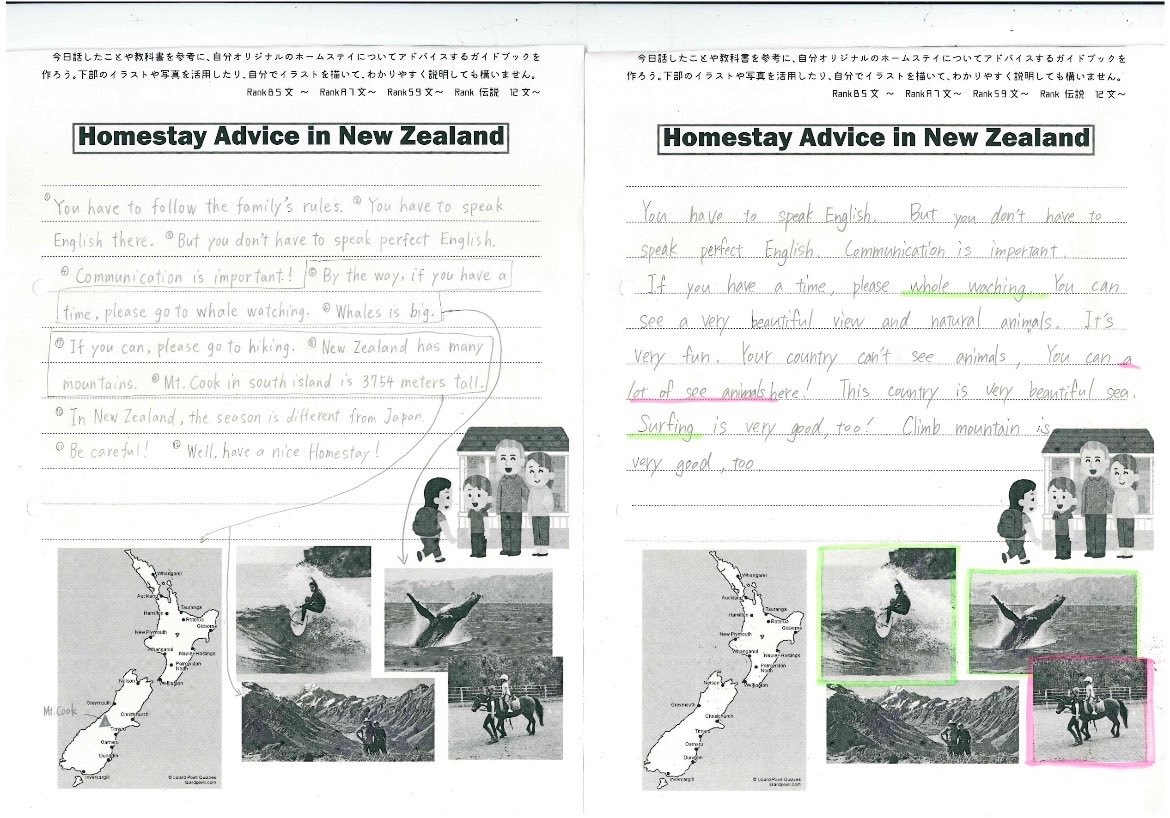 今日話したことや教科書を参考に、自分オリジナルのホームステイについてアドバイスするガイドブックを
作ろう。下部のイラストや写真を活用したり、自分でイラストを描いて、わかりやすく説明しても構いません。
RankB5文 ～ RankA7文～ RankS9文～ Rank 伝説 12文～
Homestay Advice in New Zealand
① You have to follow the family's rules. ② You have to speak
English there. ③ But you don't have to speak perfect English.
④ Communication is important! ⑤ By the way, if you have a
time, please go to whale watching. ⑥ Whales is big.
⑦ If you can, please go to hiking. ⑧ New Zealand has many
mountains. ⑨ Mt. Cook in south island is 3754 meters tall.
⑩ In New Zealand, the season is different from Japan
⑪ Be careful! ⑫ Well, have a nice Homestay!
Whangarei
Auckland
Tauranga
Hamilton
Rotorua
Gisborne
New Plymouth
Napier-Hastings
Whanganui
Palmerston
North
Nelson
Wellington
Greymouth
Mt. Cook
Christchurch
Timaru
Oamaru
Dunedin
Invercargill
© Lizard Point Quizzes
lizardpoint.com
今日話したことや教科書を参考に、自分オリジナルのホームステイについてアドバイスするガイドブックを
作ろう。下部のイラストや写真を活用したり、自分でイラストを描いて、わかりやすく説明しても構いません。
RankB5文 ～ RankA7文～ RankS9文～ Rank 伝説 12文～
Homestay Advice in New Zealand
You have to speak English. But you don't have to
speak perfect English. Communication is important.
If you have a time, please whole waching. You can
see a very beautiful view and natural animals. It's
very fun. Your country can't see animals, You can a
lot of see animals here! This country is very beautiful sea.
Surfing is very good, too! Climb mountain is
very good, too.
Whangarei
Auckland
Tauranga
Hamilton
Rotorua
Gisborne
New Plymouth
Napier-Hastings
Whanganui
Palmerston
North
Nelson
Wellington
Greymouth
Christchurch
Timaru
Oamaru
Dunedin
Invercargill
© Lizard Point Quizzes
lizardpoint.com